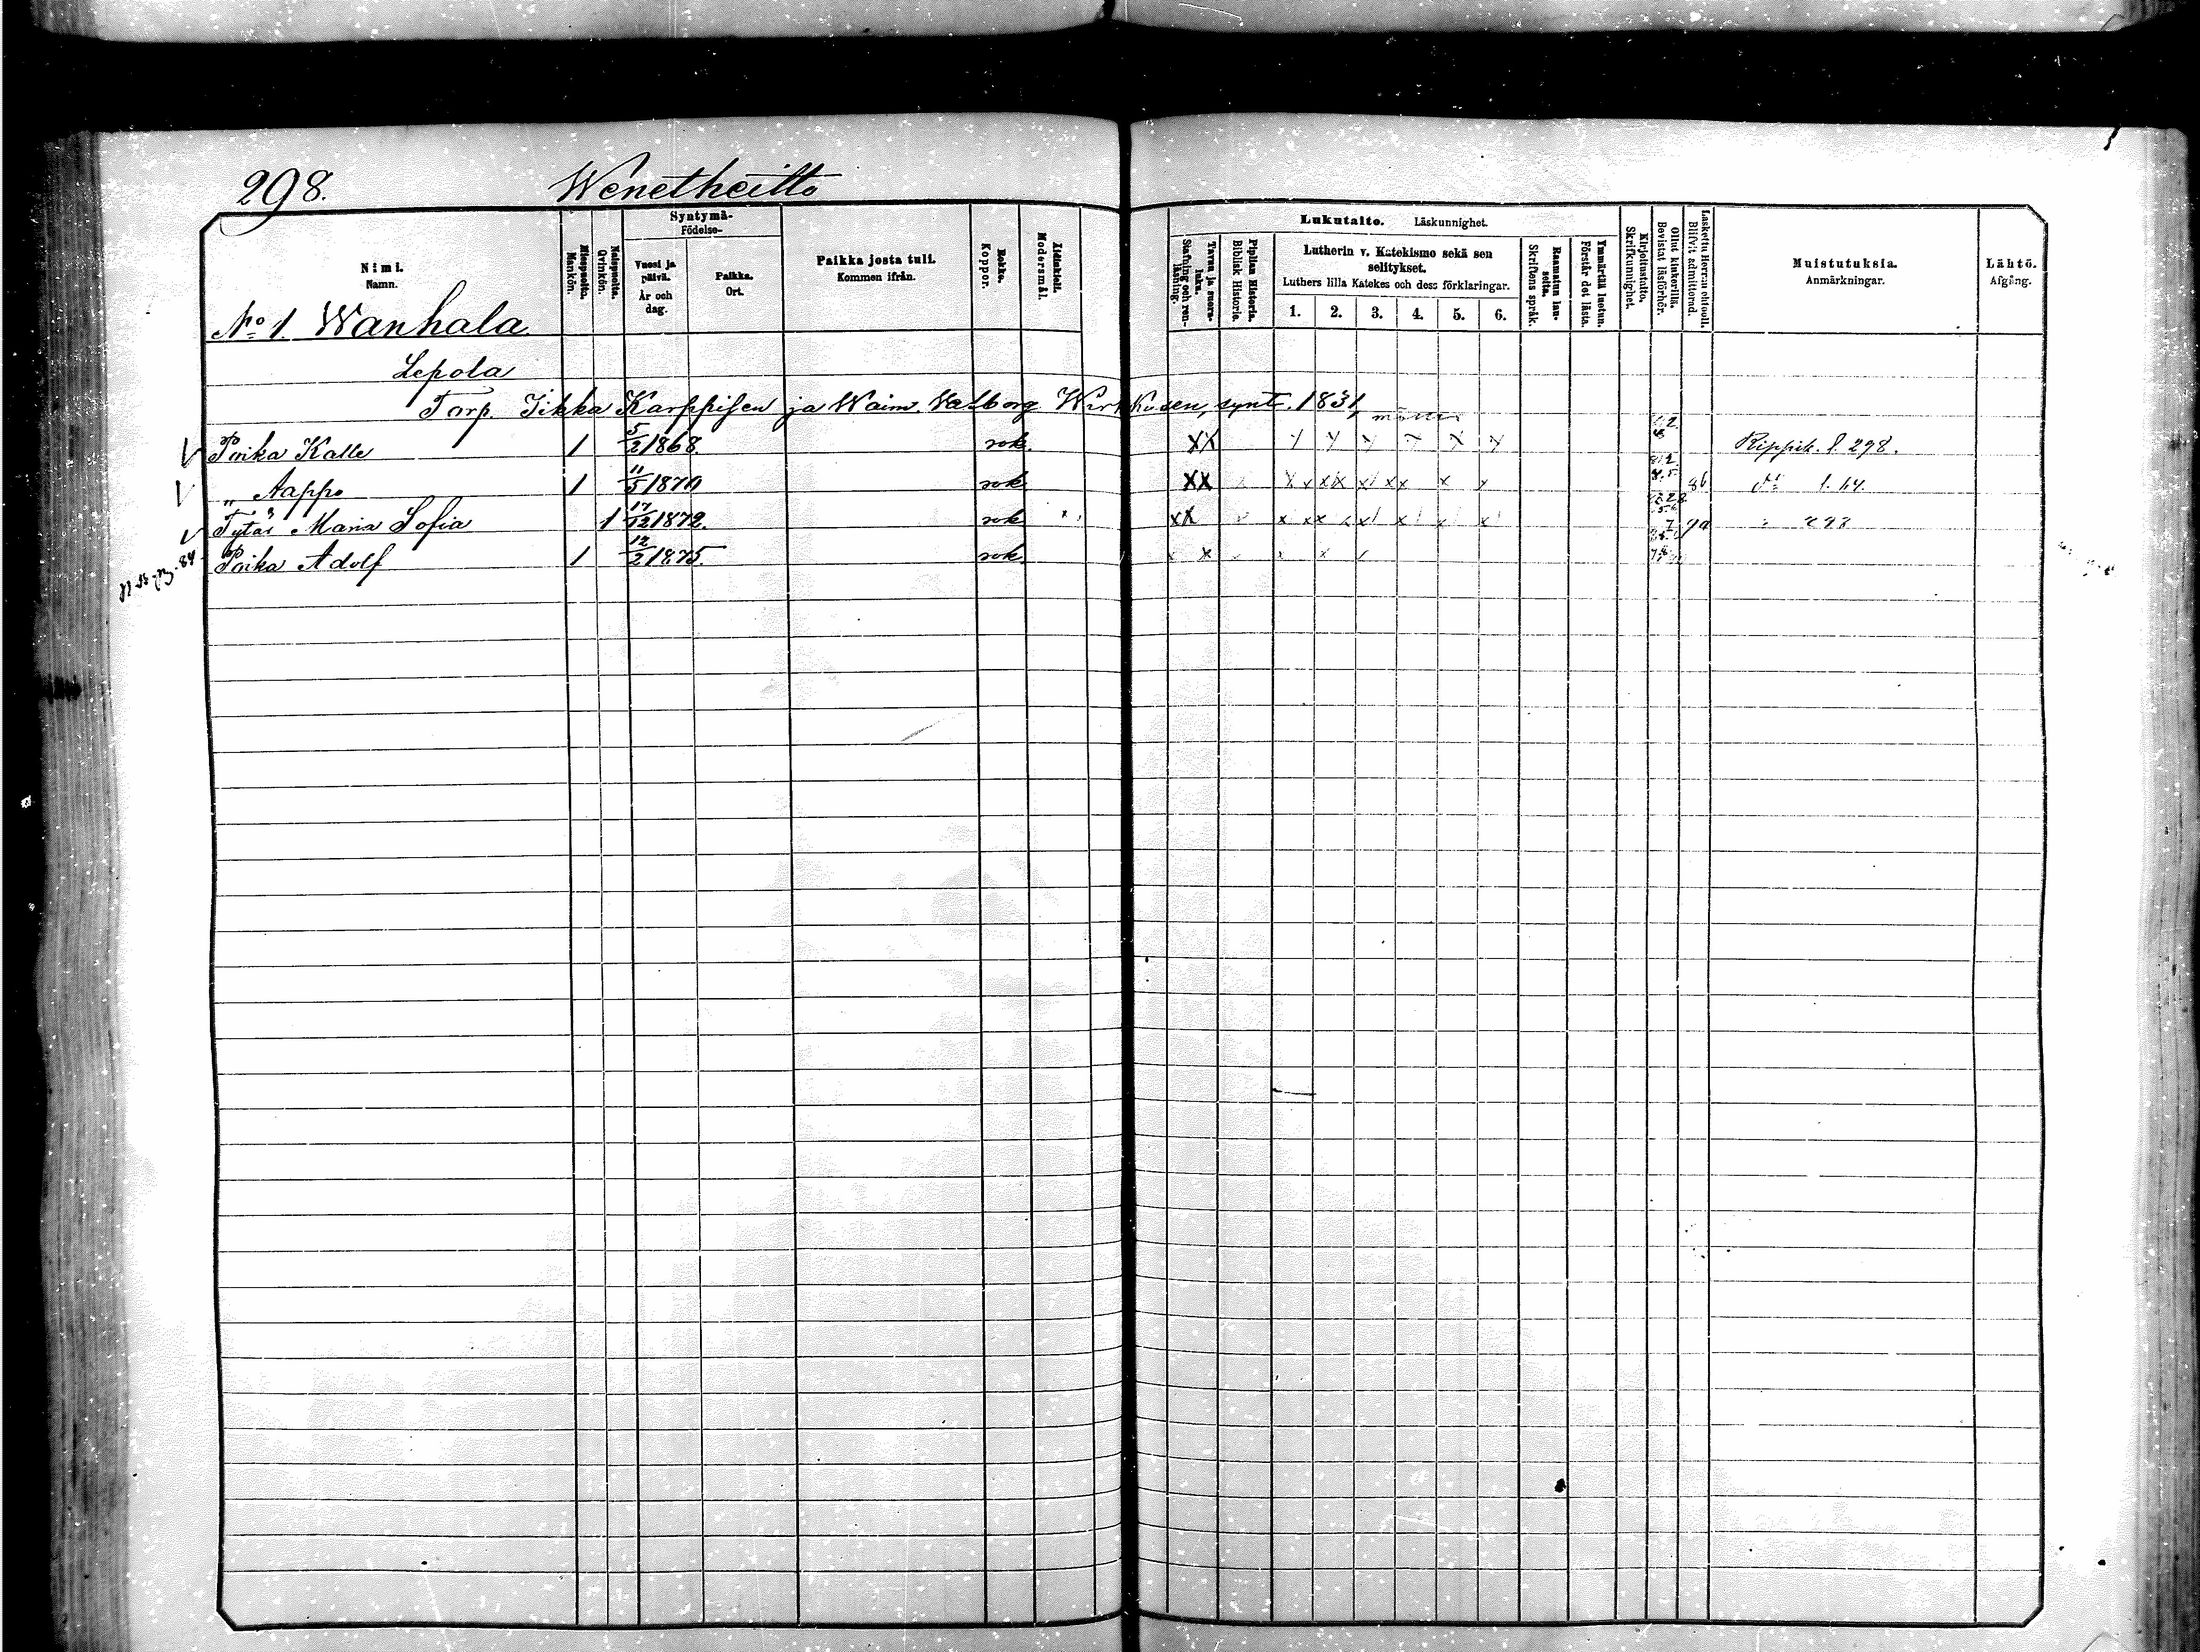 298. Wenetheitto
Nimi. Namn.
Miespuolia. Mankön.
Naispuolia. Qvinkön.
Syntymä- Födelse-
Vuosi ja päivä. År och dag.
Paikka. Ort.
Paikka josta tuli. Kommen ifrån.
Rokko. Koppor.
Äidinkieli. Modersmål.
Lukutaito. Läskunnighet.
Tavau ja suora- luku. Stafning och ren- läsning.
Piplian Historia. Biblisk Historie.
Lutherin v. Katekismo sekä sen selitykset.
Luthers lilla Katekes och dess förklaringar.
1. 2. 3. 4. 5. 6.
Raamatun lau- seita. Skriftens språk.
Ymmärtää luetun. Förstår det lästa.
Kirjoitustaito. Skrifkunnighet.
Ollut kinkerillä. Bevistat läsförhör.
Laskettu Herran ehtool. Blifvit admitterad.
Muistutuksia. Anmärkningar.
Lähtö. Afgång.
No 1. Wanhala
Lepola
Torp. Iikka Karppisen ja Waim. Walborg Wirkkusen, synt. 1831,
Poika Kalle 1 5/2 1868. rok. XX Rippik. l. 298.
" Aappo 1 11/5 1870 rok XX 86 l. 14.
Tytär Maria Sofia 1 17/12 1872. rok XX 298
Poika Adolf 1 12/2 1875. rok x x